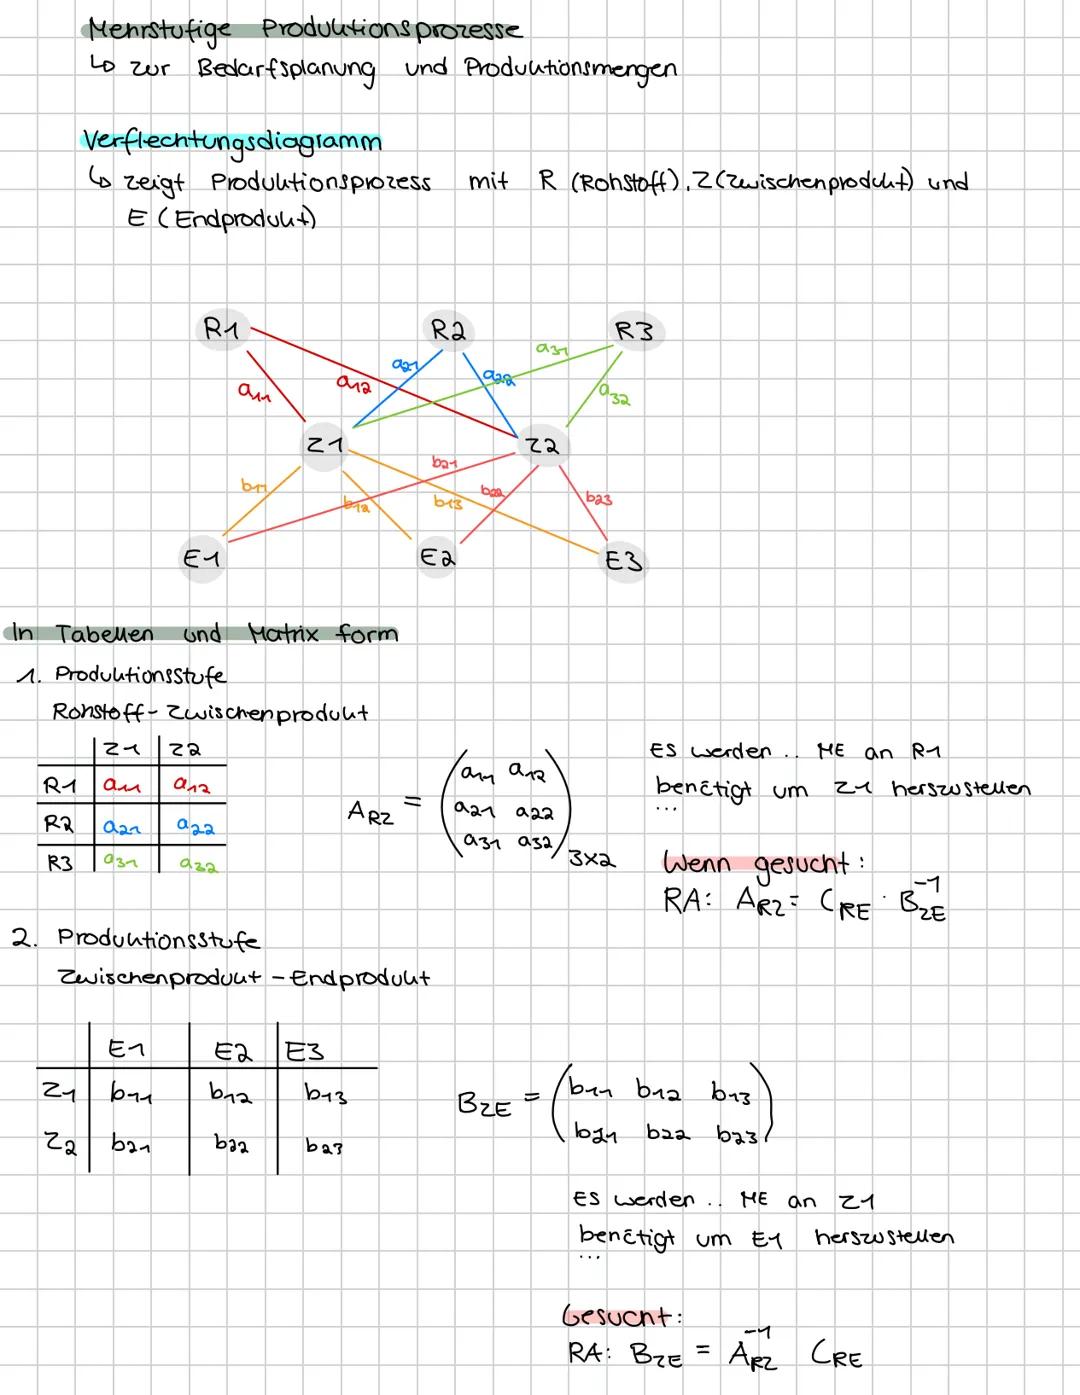 Mehrstufige Produktionsprozesse
↳ zur Bedarfsplanung und Produktionsmengen
Verflechtungsdiagramm
↳ zeigt Produktionsprozess mit R (Rohstoff), Z (Zwischenprodukt) und
E (Endprodukt)
R1 R2 R3
a31
a21 a22
a11 a12 a32
Z1 Z2
b21
b11 b12 b13 b22 b23
E1 E2 E3
In Tabellen und Matrix form
1. Produktionsstufe
Rohstoff - Zwischenprodukt
Z1 Z2
R1 a11 a12
R2 a21 a22
R3 a31 a32
A RZ = (a11 a12
a21 a22
a31 a32) 3x2
Es werden .. ME an R1
benötigt um Z1 herszustellen
...
Wenn gesucht:
RA: A RZ = C RE · B ZE ⁻¹
2. Produktionsstufe
Zwischenprodukt - Endprodukt
E1 E2 E3
Z1 b11 b12 b13
Z2 b21 b22 b23
B ZE = (b11 b12 b13
b21 b22 b23)
Es werden .. ME an Z1
benötigt um E1 herszustellen
...
Gesucht:
RA: B ZE = A RZ ⁻¹ C RE